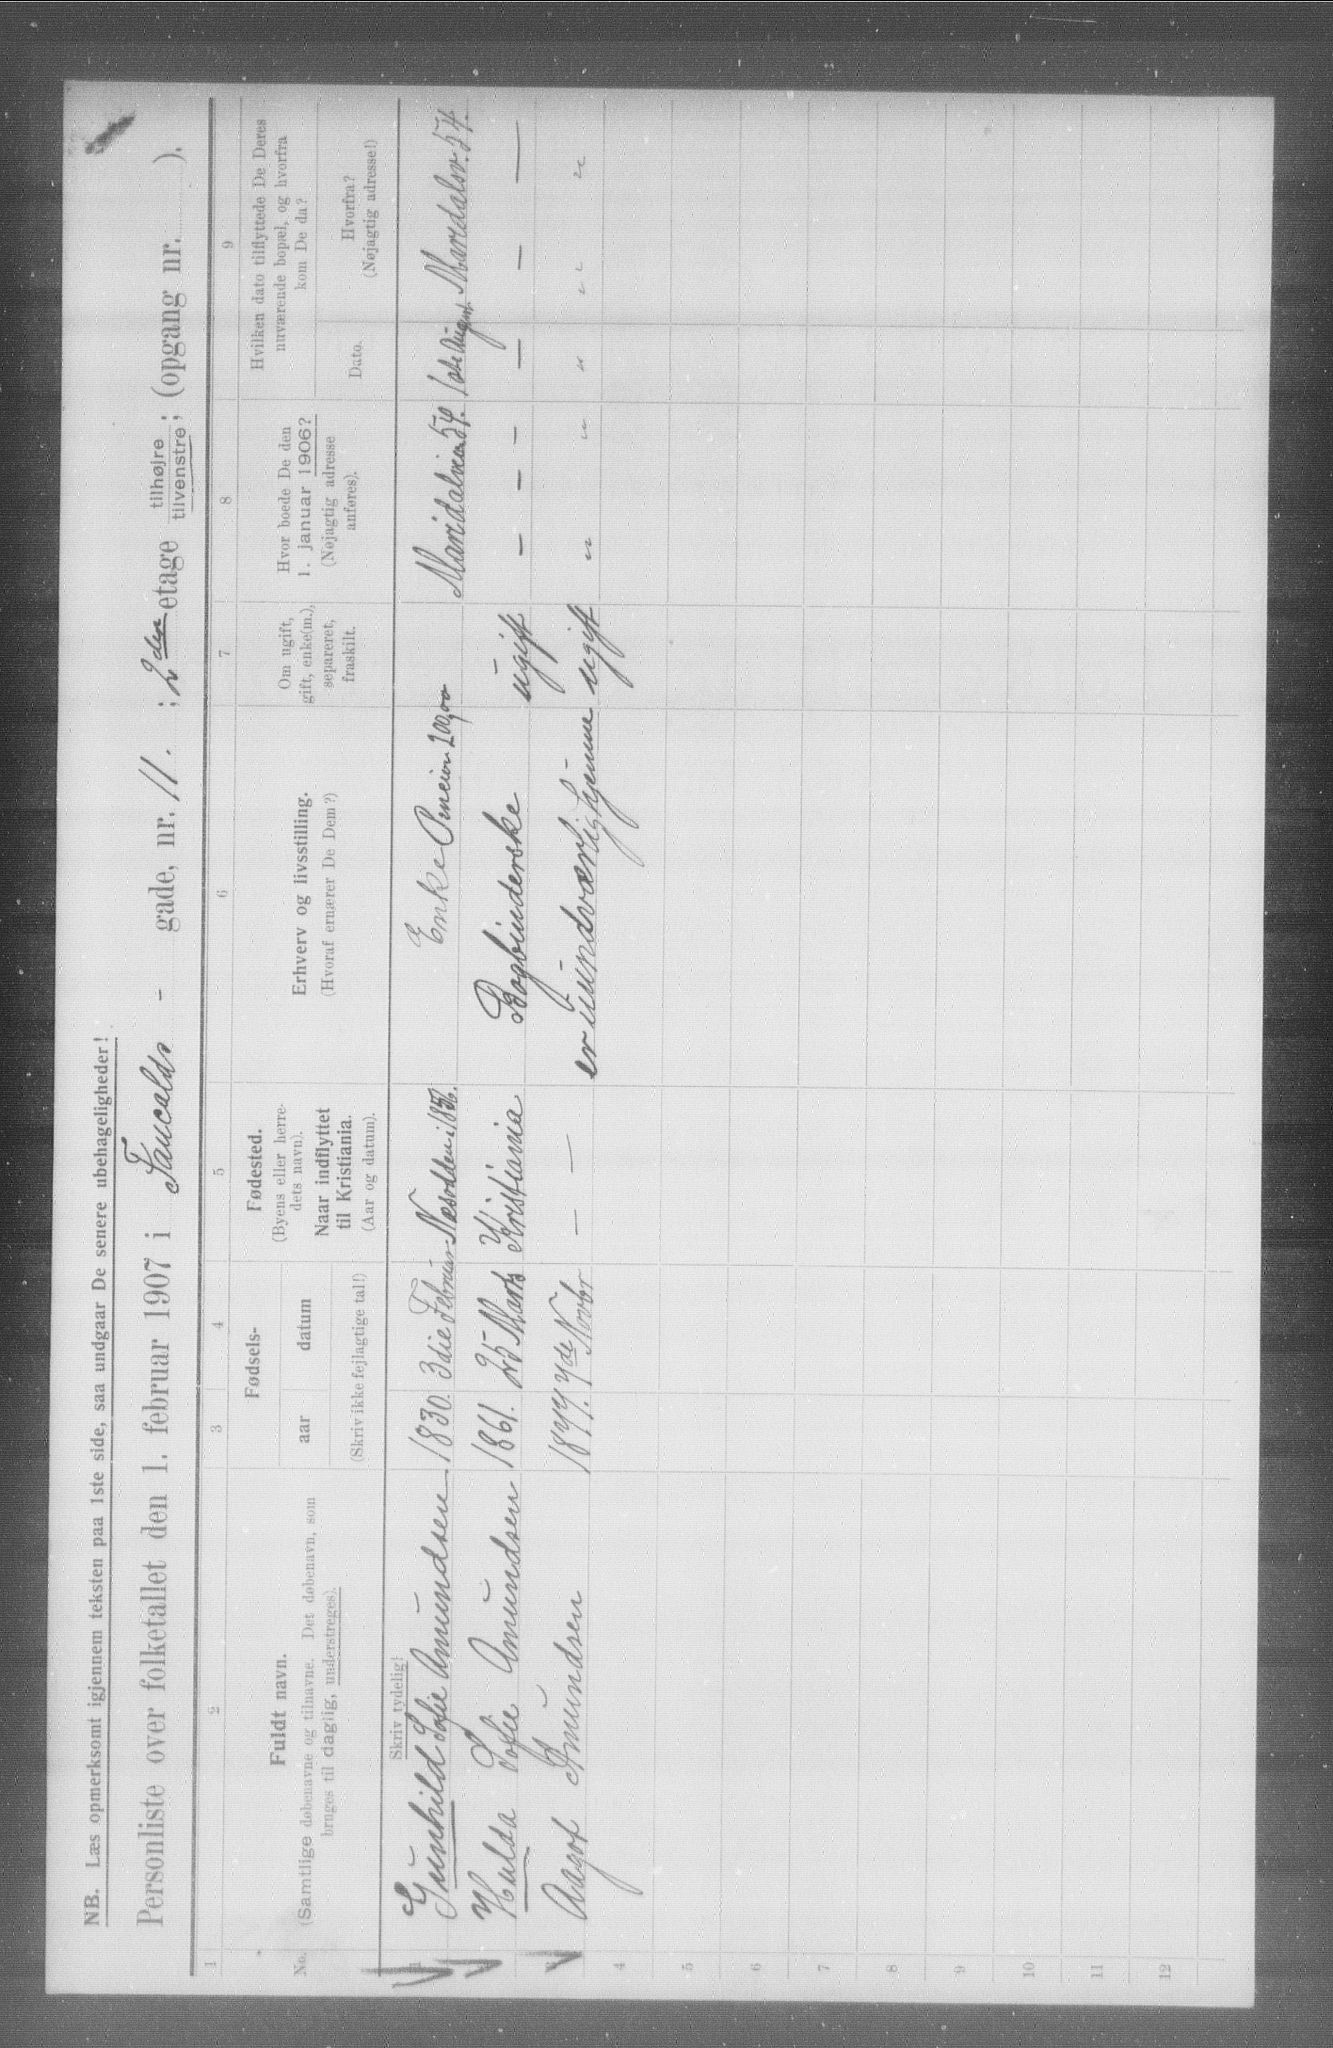 NB. Læs opmerksomt igjennem teksten paa 1ste side, saa undgaar De senere ubehageligheder!
Personliste over folketallet den 1. februar 1907 i Faucalds - gade, nr. 11. ; 2den etage tilhøjre tilvenstre; (opgang nr. ).
1 2 3 4 5 6 7 8 9
No.
Fuldt navn.
(Samtlige døbenavne og tilnavne. Det døbenavn, som
bruges til daglig, understreges).
Fødsels-
aar datum
(Skriv ikke fejlagtige tal!)
Fødested.
(Byens eller herre-
dets navn).
Naar indflyttet
til Kristiania.
(Aar og datum).
Erhverv og livsstilling.
(Hvoraf ernærer De Dem?)
Om ugift,
gift, enke(m.),
separeret,
fraskilt.
Hvor boede De den
1. januar 1906?
(Nøjagtig adresse
anføres).
Hvilken dato tilflyttede De Deres
nuværende bopæl, og hvorfra
kom De da?
Dato.
Hvorfra?
(Nøjagtig adresse!)
Skriv tydelig!
1 Gunhild Sofie Amundsen 1830. 3die Februar Næsodden i 1856. Enke Pension 200,00 Maridalsveien 54. 1ste August Maridalsv. 54.
Hulda Sofie Amundsen 1861. 25 Marts Kristiania Bogbinderske ugift - - - - - -
Aagot Amundsen 1877. 7de Novbr - - er uundværlig hjemme ugift " " " " "
4
5
6
7
8
9
10
11
12